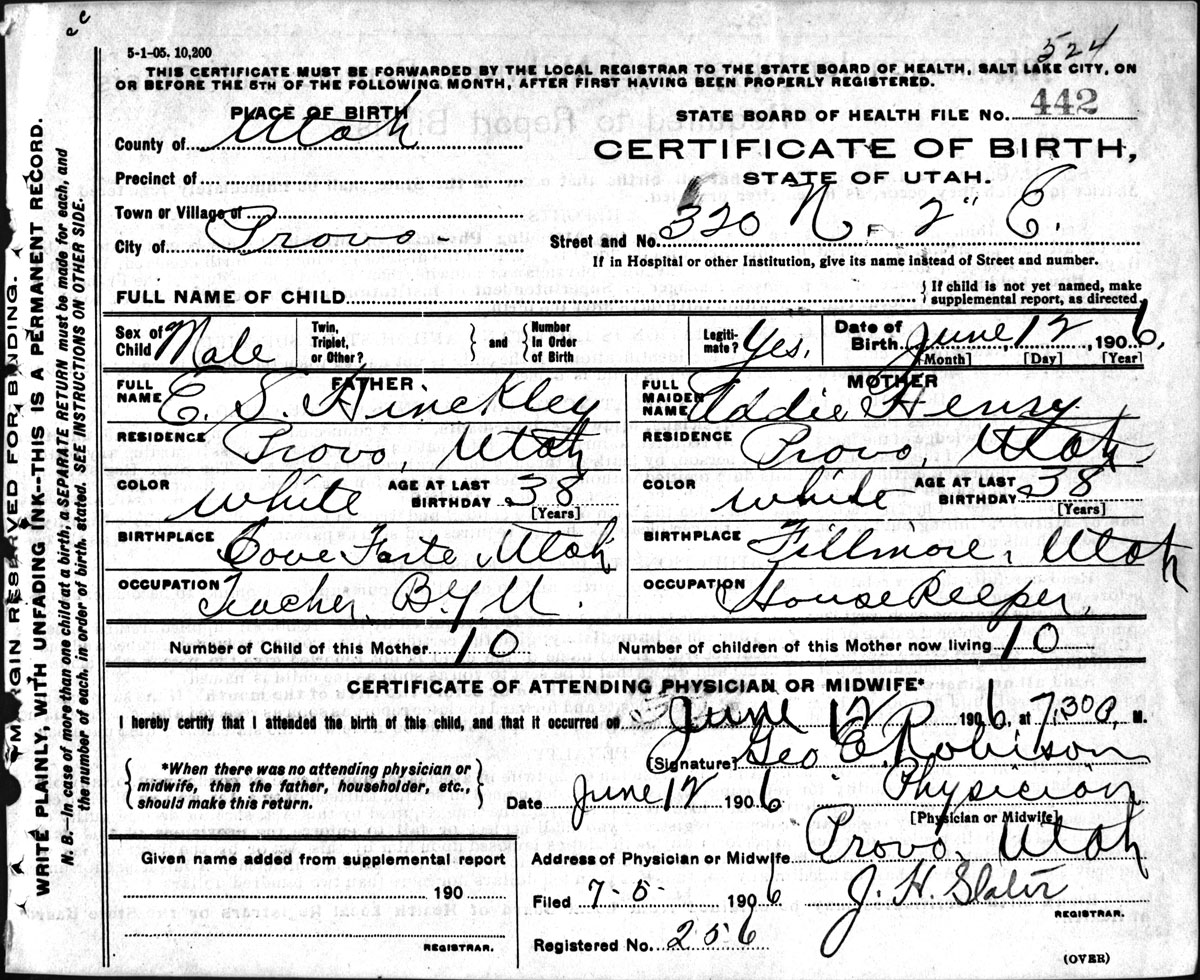 524
5-1-05. 10,200
THIS CERTIFICATE MUST BE FORWARDED BY THE LOCAL REGISTRAR TO THE STATE BOARD OF HEALTH, SALT LAKE CITY, ON
OR BEFORE THE 5TH OF THE FOLLOWING MONTH, AFTER FIRST HAVING BEEN PROPERLY REGISTERED.
PLACE OF BIRTH
STATE BOARD OF HEALTH FILE No. 442
County of Utah
CERTIFICATE OF BIRTH,
Precinct of
STATE OF UTAH.
Town or Village of
City of Provo -
Street and No. 320 N F 2" E.
If in Hospital or other Institution, give its name instead of Street and number.
FULL NAME OF CHILD
{ If child is not yet named, make
supplemental report, as directed
Sex of Child Male Twin, Triplet, or Other? } and { Number In Order of Birth Legiti-mate? Yes. Date of Birth June 12, 1906,
[Month] [Day] [Year]
FATHER MOTHER
FULL NAME E. S. Hinckley FULL MAIDEN NAME Addie Henry
RESIDENCE Provo, Utah RESIDENCE Provo, Utah
COLOR White AGE AT LAST BIRTHDAY 38 [Years] COLOR White AGE AT LAST BIRTHDAY 38 [Years]
BIRTHPLACE Cove Forte, Utah BIRTHPLACE Fillmore, Utah
OCCUPATION Teacher B.Y.U. OCCUPATION HouseKeeper,
Number of Child of this Mother 10 Number of children of this Mother now living 10
CERTIFICATE OF ATTENDING PHYSICIAN OR MIDWIFE*
I hereby certify that I attended the birth of this child, and that it occurred on June 12 1906, at 7:30 P, M.
[Signature] Geo E. Robison
{ *When there was no attending physician or
midwife, then the father, householder, etc.,
should make this return. }
Date June 12 1906 Physician
[Physician or Midwife]
Given name added from supplemental report
Address of Physician or Midwife Provo, Utah
190
Filed 7-5- 1906 J. H. Slater
REGISTRAR.
REGISTRAR.
Registered No. 256
(OVER)
MARGIN RESERVED FOR BINDING.
WRITE PLAINLY, WITH UNFADING INK--THIS IS A PERMANENT RECORD.
N. B.--In case of more than one child at a birth, a SEPARATE RETURN must be made for each, and
the number of each, in order of birth, stated. SEE INSTRUCTIONS ON OTHER SIDE.